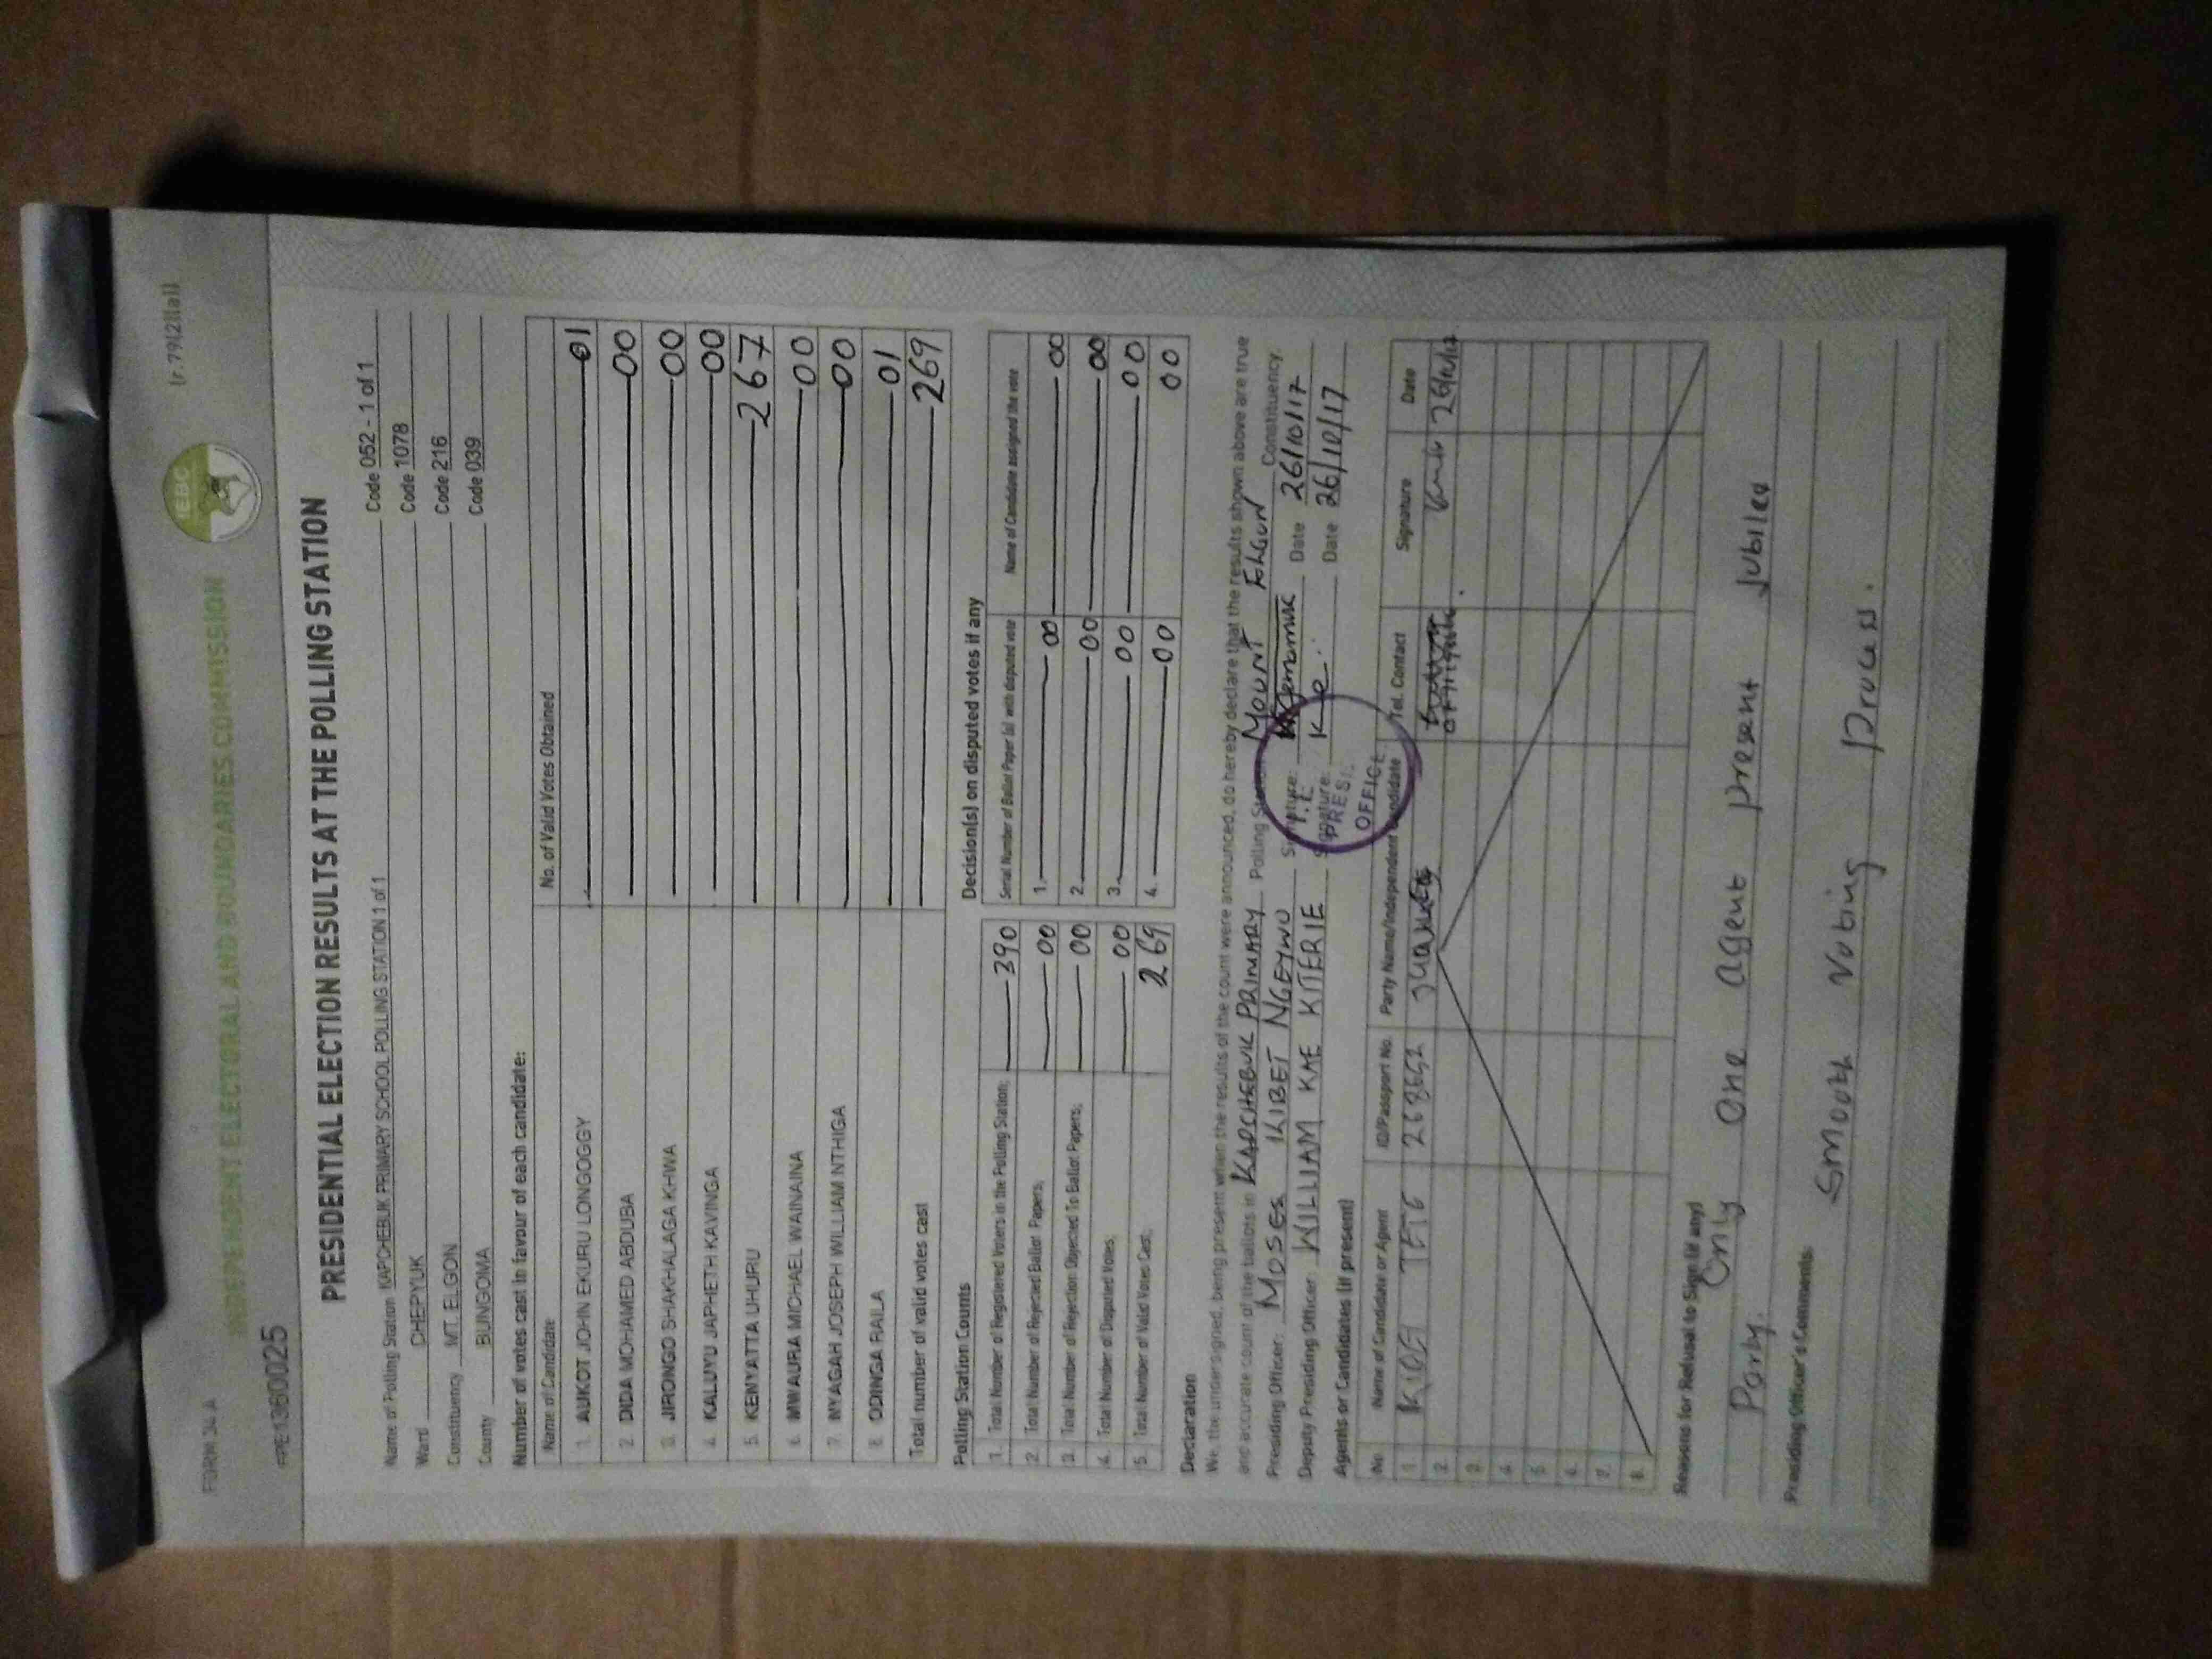 FORM 34 A
(r.79(2)(a))
IEBC
INDEPENDENT ELECTORAL AND BOUNDARIES COMMISSION
PRESIDENTIAL ELECTION RESULTS AT THE POLLING STATION
Name of Polling Station KAPCHEBUK PRIMARY SCHOOL POLLING STATION 1 of 1 Code 052 - 1 of 1
Ward CHEPYUK Code 1078
Constituency MT. ELGON Code 216
County BUNGOMA Code 039
Number of votes cast in favour of each candidate:
Name of Candidate No. of Valid Votes Obtained
1. AUKOT JOHN EKURU LONGOGGY 01
2. DIDA MOHAMED ABDUBA 00
3. JIRONGO SHAKHALAGA KHWA 00
4. KALUYU JAPHETH KAVINGA 00
5. KENYATTA UHURU 267
6. MWAURA MICHAEL WAINAINA 00
7. NYAGAH JOSEPH WILLIAM NTHIGA 00
8. ODINGA RAILA 01
Total number of valid votes cast 269
Polling Station Counts
1. Total Number of Registered Voters in the Polling Station; 390
2. Total Number of Rejected Ballot Papers; 00
3. Total Number of Rejection Objected To Ballot Papers; 00
4. Total Number of Disputed Votes; 00
5. Total Number of Valid Votes Cast; 269
Decision(s) on disputed votes if any
Serial Number of Ballot Paper (s) with disputed vote Name of Candidate assigned the vote
1. 00 00
2. 00 00
3. 00 00
4. 00 00
Declaration
We, the undersigned, being present when the results of the count were announced, do hereby declare that the results shown above are true
and accurate count of the ballots in KAPCHEBUK PRIMARY Polling Station MOUNT ELGON Constituency.
Presiding Officer: MOSES KIBET NGEYWO Signature: Date 26/10/17
Deputy Presiding Officer: WILLIAM KAE KITERIE Signature: Kae Date 26/10/17
PRESI
OFFICE
Agents or Candidates (if present)
No. Name of Candidate or Agent ID/Passport No. Party Name/Independent Candidate Tel. Contact Signature Date
1.
2.
3.
4.
5.
6.
7.
8.
Reasons for Refusal to Sign (if any)
Only one agent present Jubilee
Party.
Presiding Officer's Comments:
Smooth Voting process.